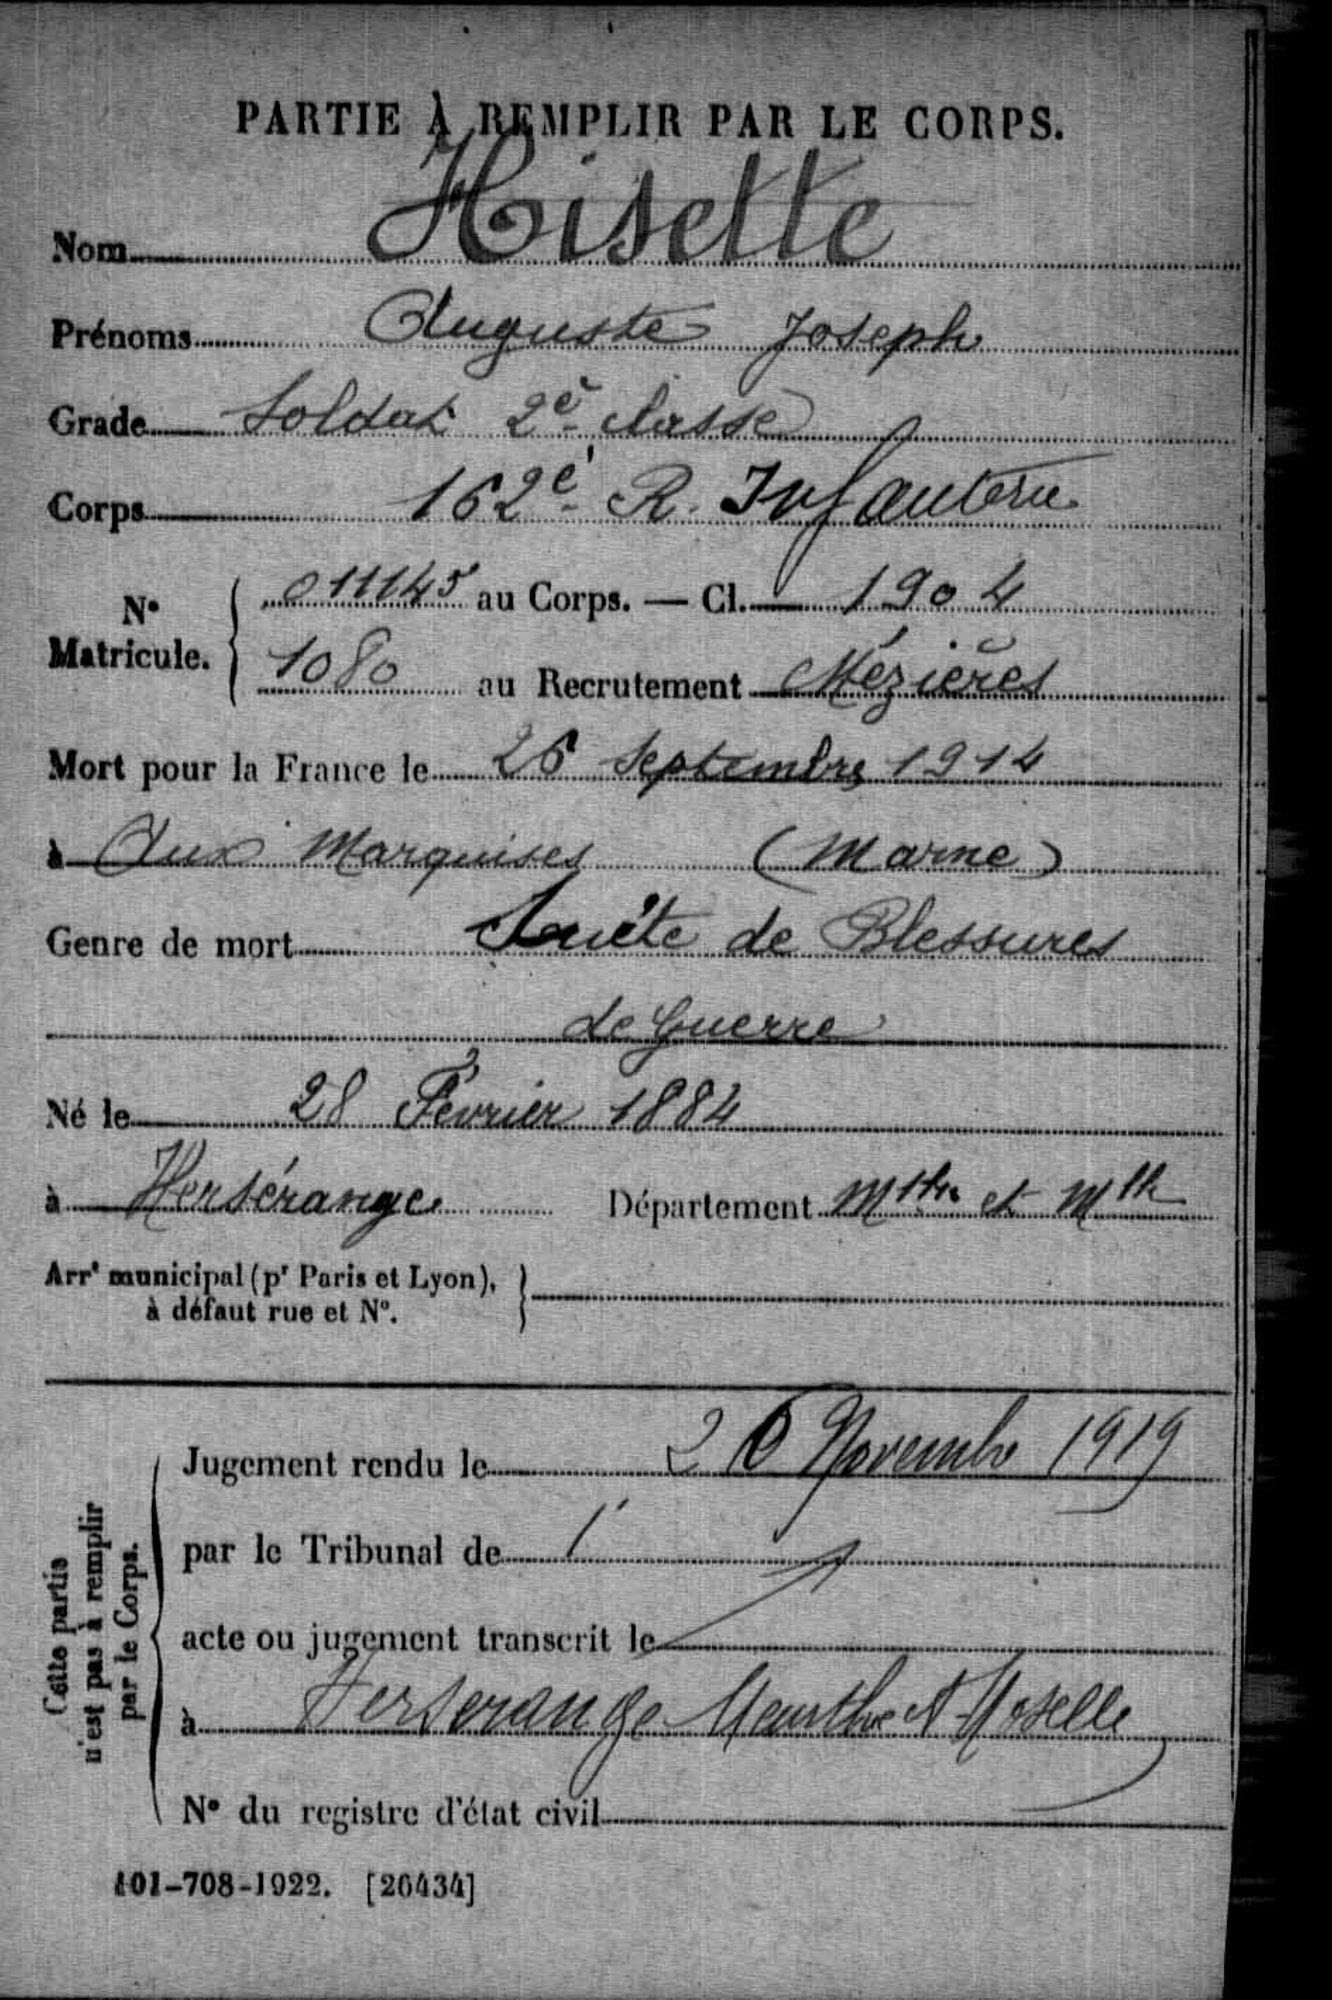 PARTIE À REMPLIR PAR LE CORPS.
Nom Hisette
Prénoms Auguste Joseph
Grade Soldat 2e classe
Corps 162e R. Infanterie
N° Matricule. { 011145 au Corps. — Cl. 1904
1080 au Recrutement Mézières
Mort pour la France le 26 Septembre 1914
à Aux Marquises (Marne)
Genre de mort Suite de Blessures
de Guerre
Né le 28 Février 1884
à Hersérange Département Mthe et Mlle
Arrt municipal (pr Paris et Lyon),
à défaut rue et N°. }
Cette partie
n'est pas à remplir
par le Corps.
Jugement rendu le 20 Novembre 1919
par le Tribunal de
acte ou jugement transcrit le
à Herserange Meurthe et Moselle
N° du registre d'état civil
101-708-1922. [26434]